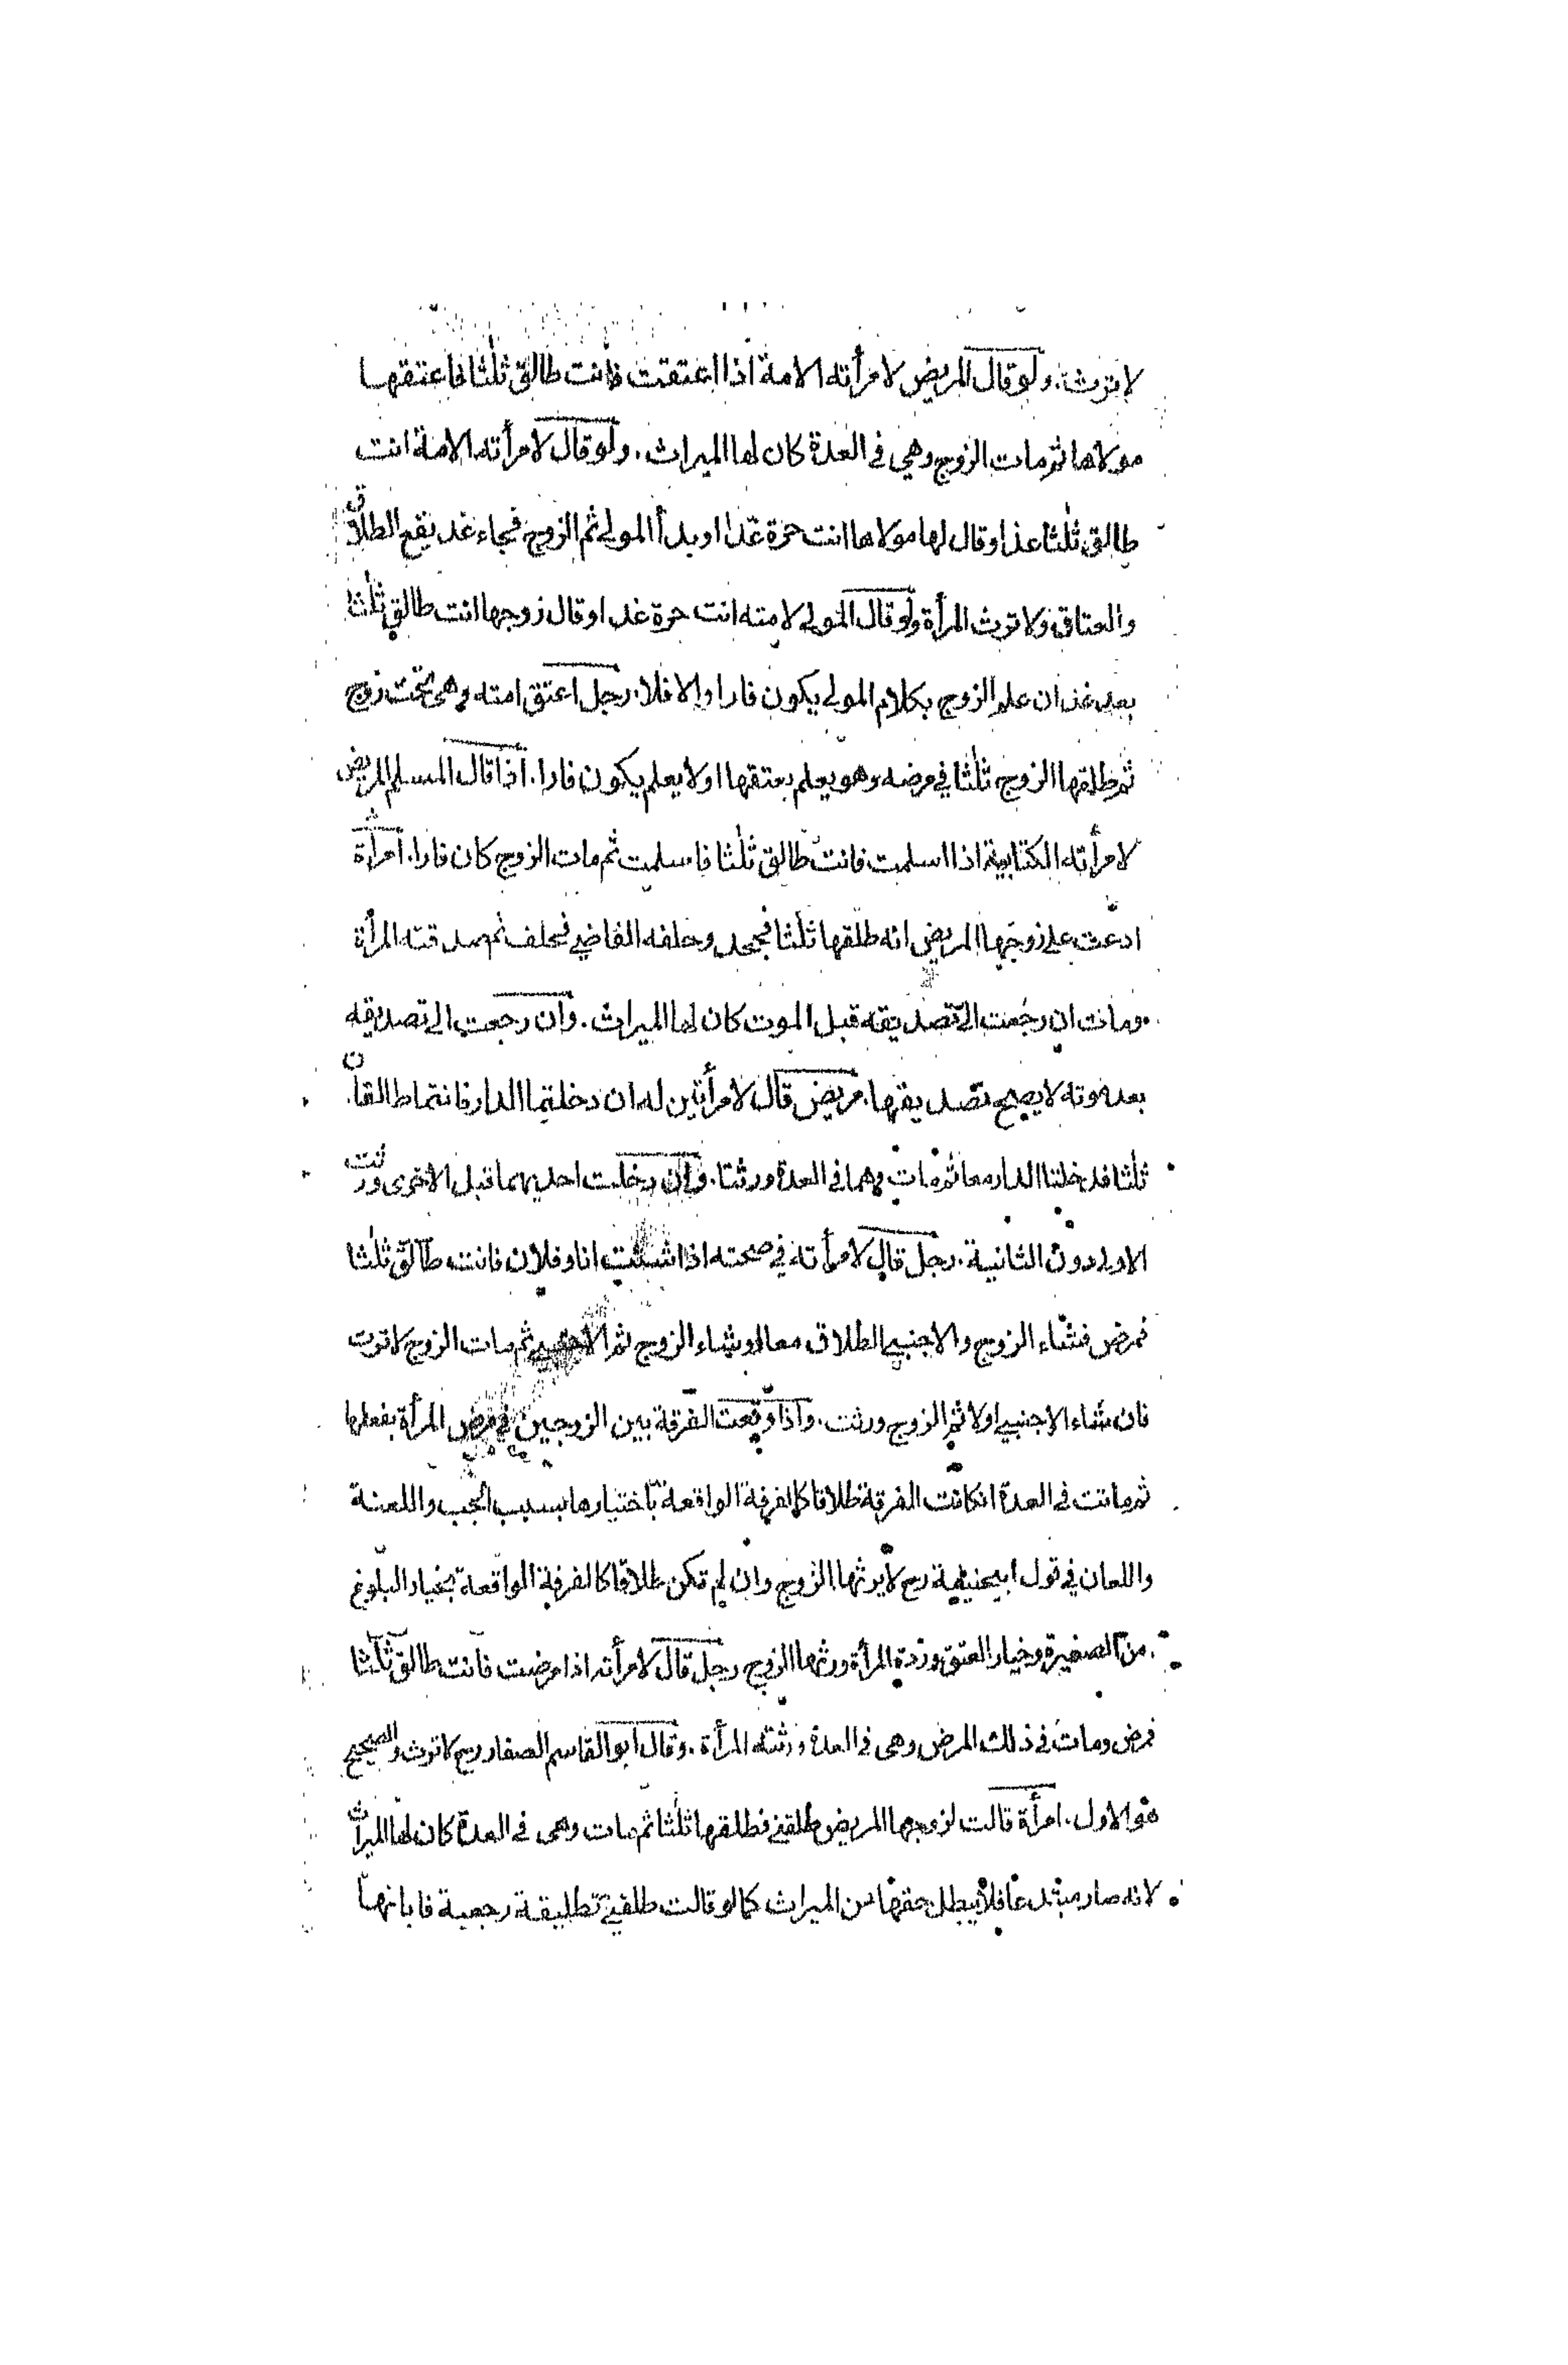 لا ترث. ولو قال المريض لامرأته الامة اذا اعتقت فانت طالق ثلثا فاعتقها
مولاها ثم مات الزوج وهي في العدة كان لها الميراث. ولو قال لامرأته الامة انت
طالق ثلثا غدا وقال لها مولاها انت حرة غدا او بدأ المولى ثم الزوج فجاء غد يقع الطلاق
والعتاق ولا ترث المرأة ولو قال المولى لامته انت حرة غدا وقال زوجها انت طالق ثلثا
بعد غد ان علم الزوج بكلام المولى يكون فارا والا فلا. رجل اعتق امته وهي تحت زوج
ثم طلقها الزوج ثلثا في مرضه وهو يعلم بعتقها او لا يعلم يكون فارا. اذا قال المسلم المريض
لامرأته الكتابية اذا اسلمت فانت طالق ثلثا فاسلمت ثم مات الزوج كان فارا. امرأة
ادعت على زوجها المريض انه طلقها ثلثا فجحد وحلفه القاضي فحلف ثم صدقته المرأة
ومات ان رجعت الى تصديقه قبل الموت كان لها الميراث. وان رجعت الى تصديقه
بعد موته لا يصح تصديقها. مريض قال لامرأتين له ان دخلتما الدار فانتما طالقان
ثلثا فدخلتا الدار معا ثم مات وهما في العدة ورثتا. وان دخلت احديهما قبل الاخرى ورثت
الاولى دون الثانية. رجل قال لامرأته في صحته اذا شئت انا وفلان فانت طالق ثلثا
فمرض فشاء الزوج والاجنبي الطلاق معا او شاء الزوج ثم الاجنبي ثم مات الزوج لا ترث
فان شاء الاجنبي اولا ثم الزوج ورثت. واذا وقعت الفرقة بين الزوجين في مرض المرأة بفعلها
ثم ماتت في العدة ان كانت الفرقة طلاقا كالفرقة الواقعة باختيارها بسبب الجب والعنة
واللعان في قول ابيحنيفة رح لا يرثها الزوج وان لم تكن طلاقا كالفرقة الواقعة بخيار البلوغ
من الصغيرة وخيار العتق وردة المرأة ورثها الزوج رجل قال لامرأته اذا مرضت فانت طالق ثلثا
فمرض ومات في ذلك المرض وهي في العدة ورثته المرأة. وقال ابو القاسم الصفار رح لا ترث والصحيح
هو الاول. امرأة قالت لزوجها المريض طلقني فطلقها ثلثا ثم مات وهي في العدة كان لها الميراث
لانه صار مبتدعا فلا يبطل حقها من الميراث كما لو قالت طلقني تطليقة رجعية فابانها